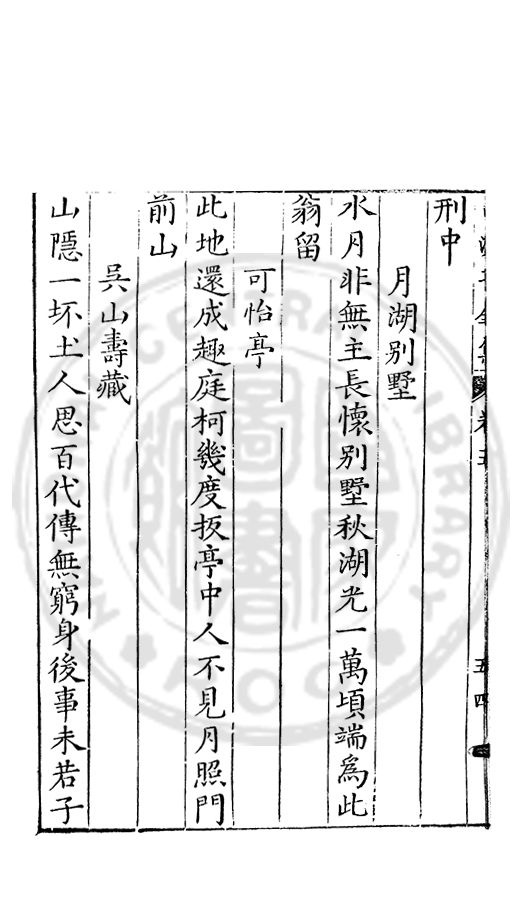 刑中
月湖别墅
水月非無主長懷别墅秋湖光一萬頃端爲此
翁留
可怡亭
此地還成趣庭柯幾度扳亭中人不見月照門
前山
吳山壽藏
山隱一坏土人思百代傳無窮身後事未若子
卷五
五四
CENTRAL LIBRARY